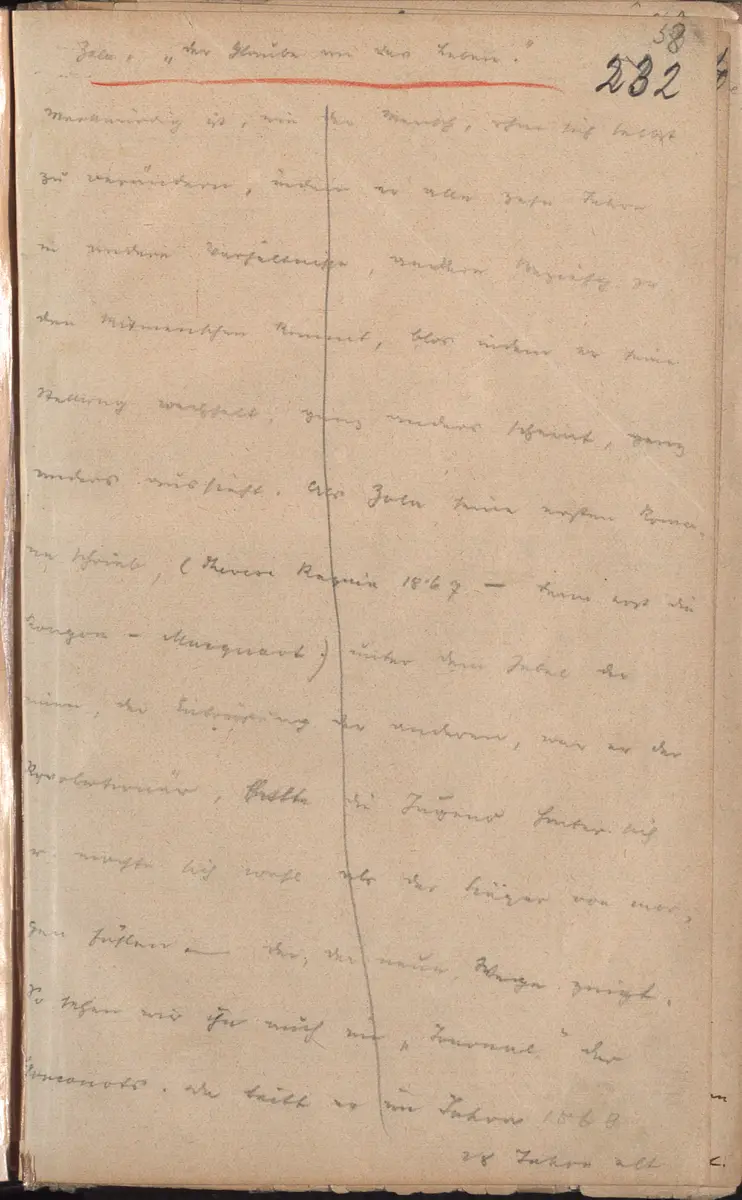 58
232
Zola, „Der Glaube an das Leben."
Merkwürdig ist, wie der Mensch, ohne sich selbst
zu verändern, indem er alle zehn Jahre
in andere Verhältnisse, andere Bezieh. zu
den Mitmenschen kommt, blos indem er seine
Stellung wechselt, ganz anders scheint, ganz
anders aussieht. Als Zola seine ersten Roma-
ne schrieb, (Therese Raquin 1867 — dann erst die
Rougon-Macquart) unter dem Jubel der
einen, der Entrüstung der anderen, war er der
Revolutionär, hatte die Jugend hinter sich
er mochte sich wohl als der Träger von mor-
gen fühlen — der, der neue Wege zeigt.
So sehen wir ihn auch im „Journal" der
Goncourts. Da tritt er im Jahre 1868
28 Jahre alt